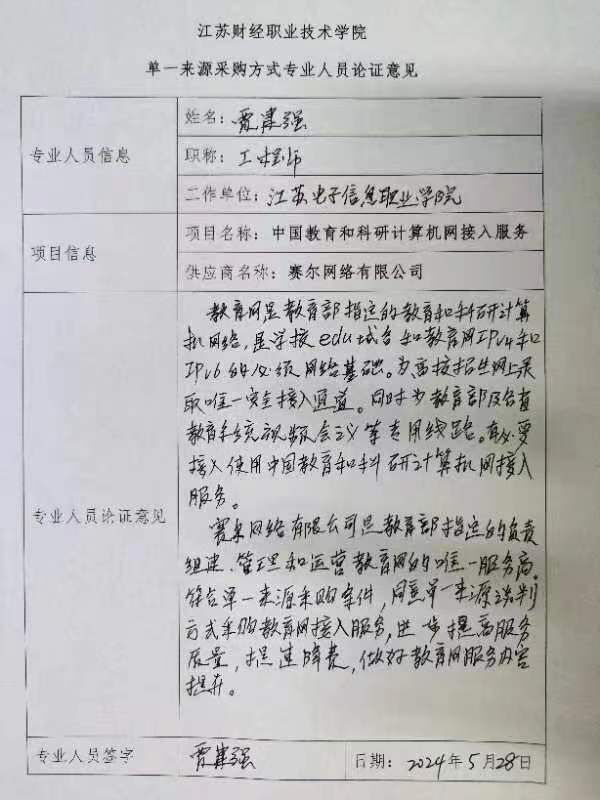 江苏财经职业技术学院
单一来源采购方式专业人员论证意见
专业人员信息
姓名：贾建强
职称：工程师
工作单位：江苏电子信息职业学院
项目信息
项目名称：中国教育和科研计算机网接入服务
供应商名称：赛尔网络有限公司
专业人员论证意见
教育网是教育部指定的教育和科研计算
机网络，是学校edu域名和教育网IPv4和
IPv6的必须网络基础。为高校招生网上录
取唯一安全接入通道。同时为教育部及各直
教育系统视频会议等专用线路。有必要
接入使用中国教育和科研计算机网接入
服务。
赛尔网络有限公司是教育部指定的负责
组建、管理和运营教育网的唯一服务商。
符合单一来源采购条件，同意单一来源谈判
方式采购教育网接入服务，进一步提高服务
质量，提速降费，做好教育网服务内容
提升。
专业人员签字
贾建强
日期：2024年5月28日